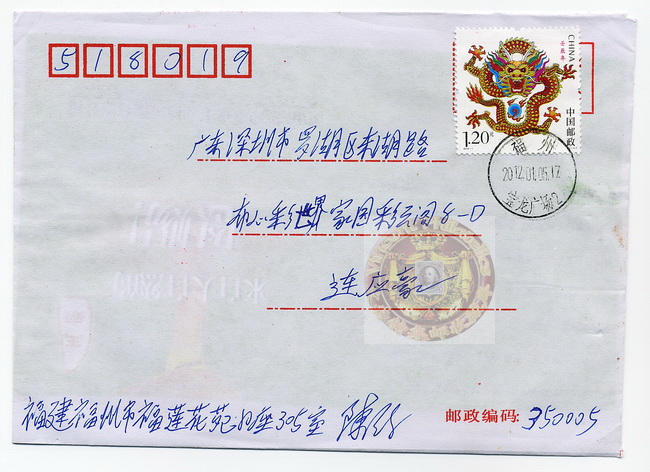 518019
CHINA
壬辰年
中国邮政
1.20元
福州
2012.01.05.17
宝龙广场2
广东深圳市罗湖区东湖路
彩世界家园彩云阁8-D
连应豪
福建福州市福莲花苑 座305室 陈
邮政编码: 350005